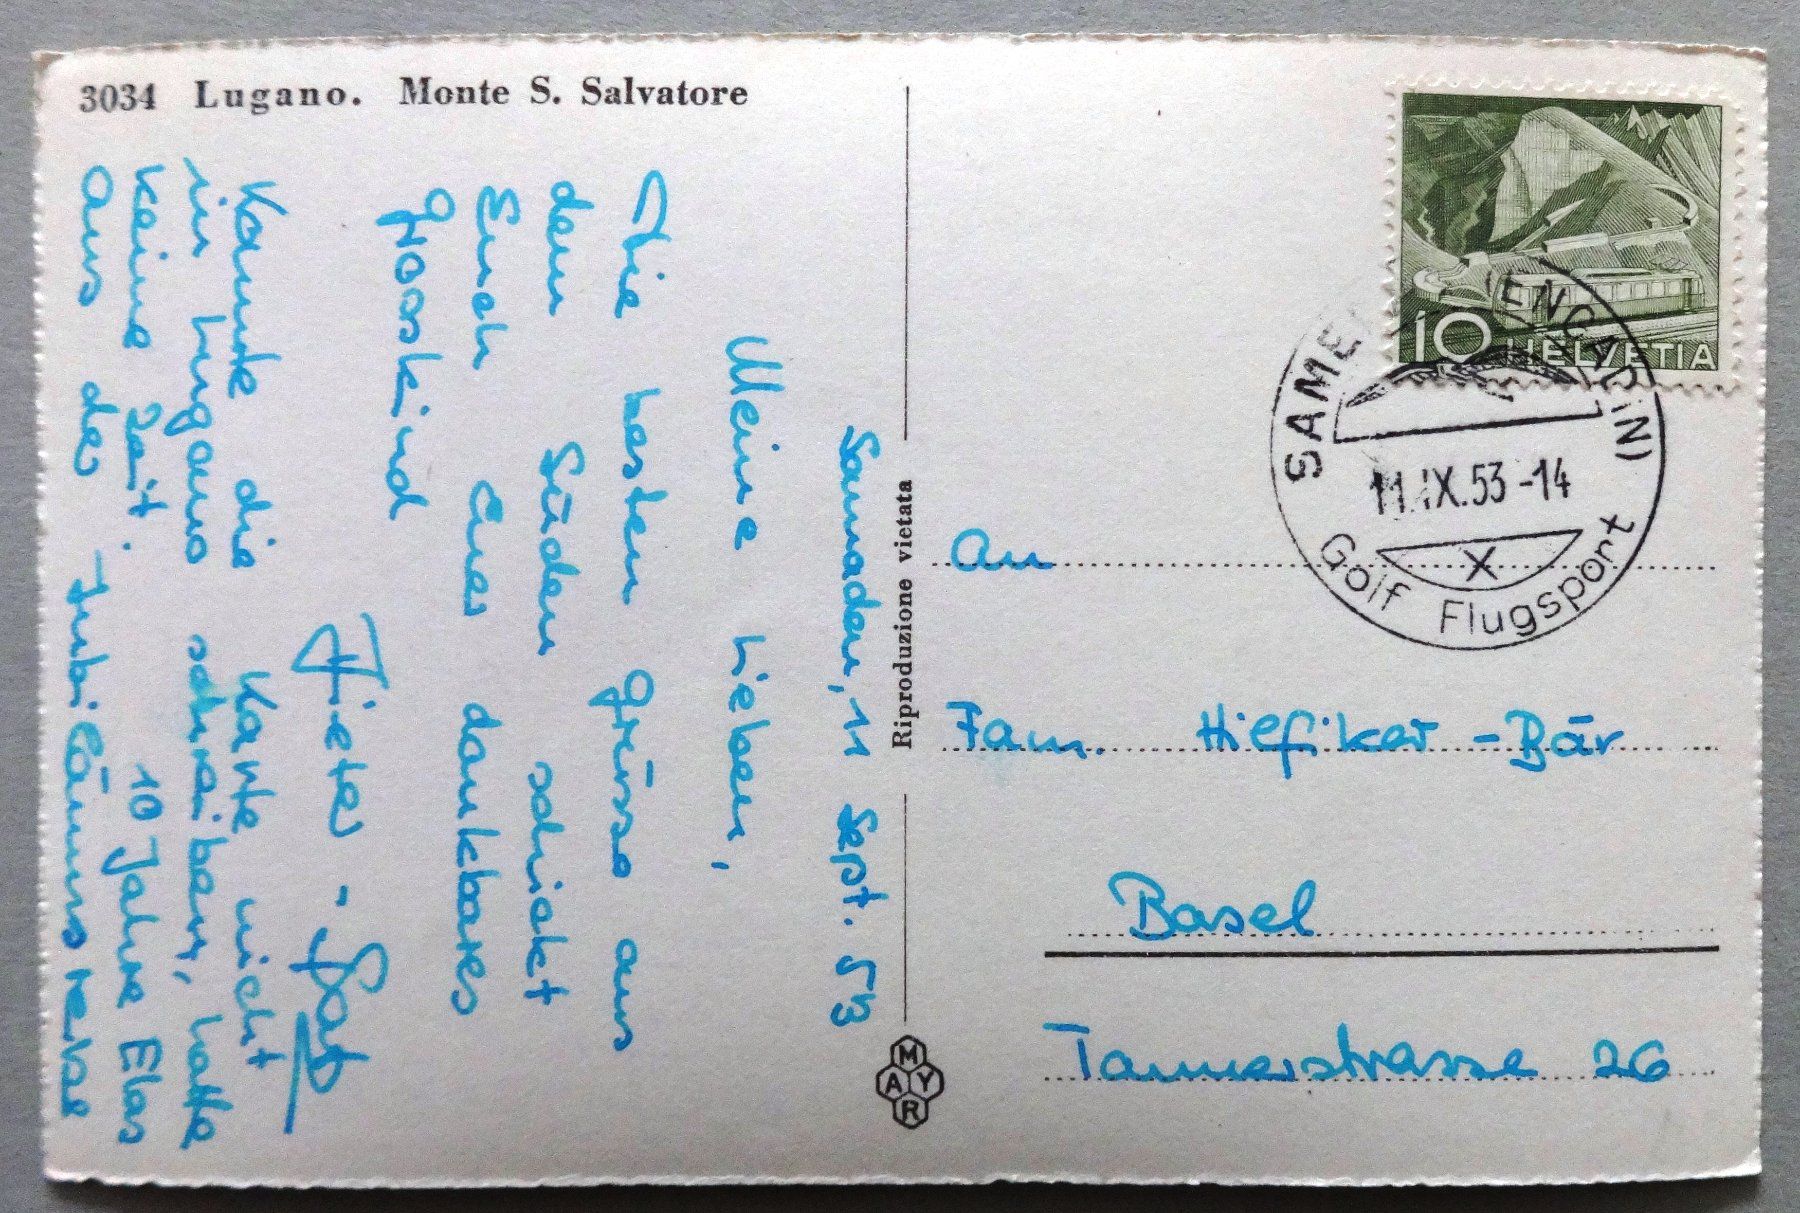 3034 Lugano. Monte S. Salvatore
Samaden, 11 Sept. 53
Meine Lieben,
Die besten Grüsse aus
dem Süden schickt
Euch Euer dankbares
Grosskind
Konnte die Karte nicht
in Lugano schreiben, hatte
keine Zeit. 10 Jahre Elas
aus der Jubiläums
Riproduzione vietata
MAYR
10 HELVETIA
SAME (ENGADIN)
11.IX.53-14
Golf Flugsport
X
An
Fam. Hiefiker-Bär
Basel
Tannerstrasse 26